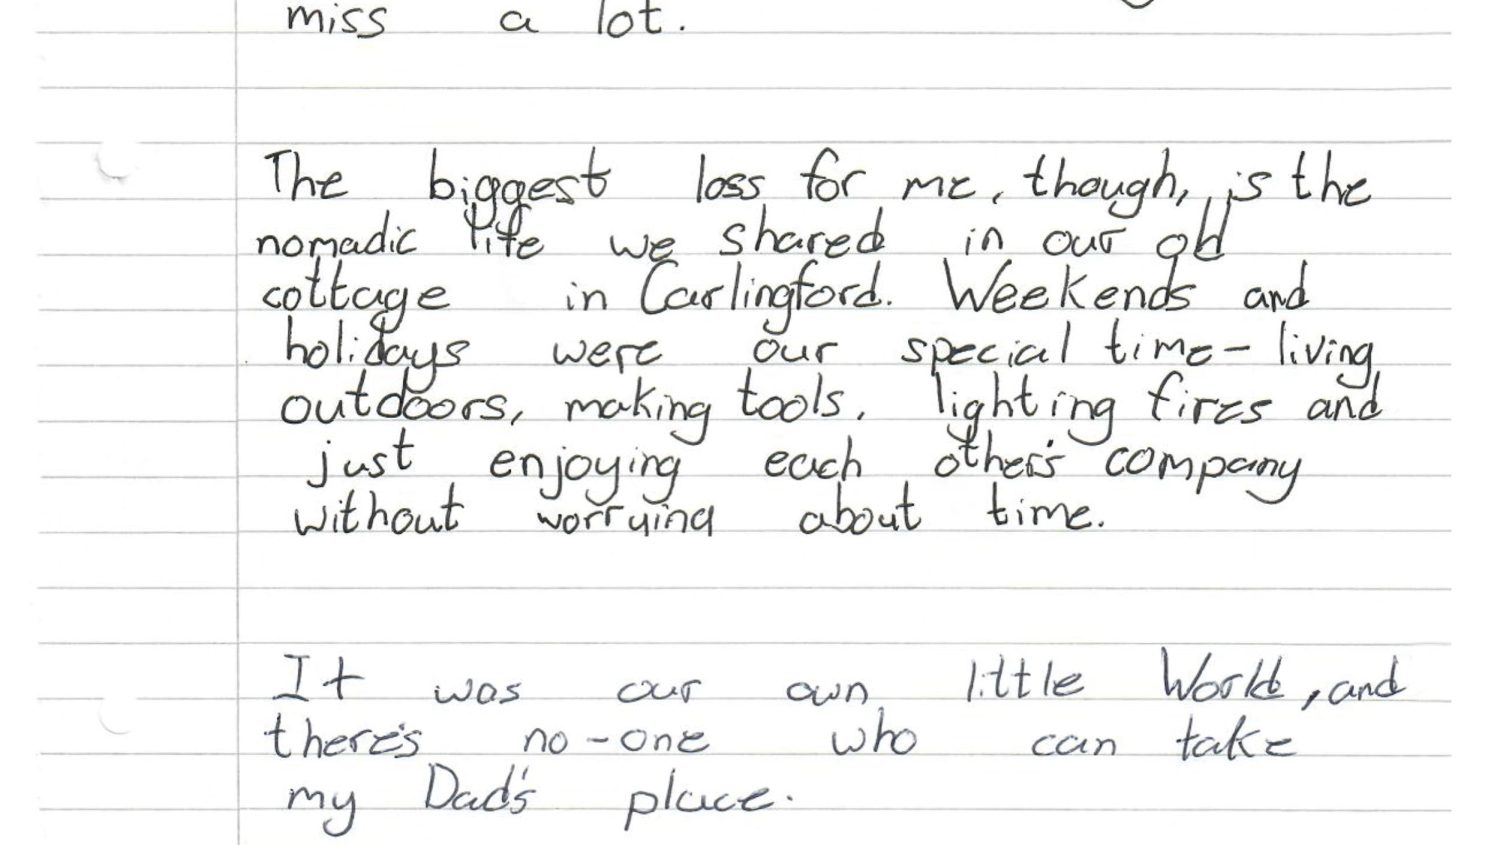 miss a lot.
The biggest loss for me, though, is the
nomadic life we shared in our old
cottage in Carlingford. Weekends and
holidays were our special time- living
outdoors, making tools, lighting fires and
just enjoying each other's company
without worrying about time.
It was our own little World, and
there's no-one who can take
my Dad's place.